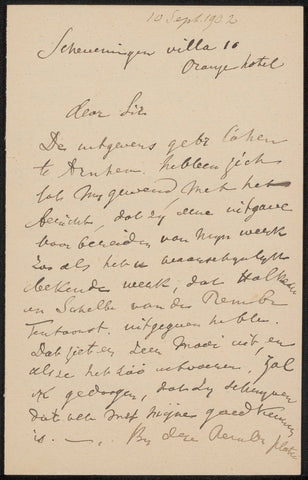 10 Sept 1902
Scheveningen villa 10
Oranje hotel
dear Sir
De uitgevers gebr Cohen
te Arnhem hebben zich
tot mij gewend, met het
bericht, dat zij eene uitgave
voorbereiden van mijn werk
zoo als het U waarschijnlijk
bekende werk, dat
en Scheltema van der Rembr.
tentoonst. uitgegeven hebben.
Dat ziet er zeer mooi uit, en
als ze het zoo uitvoeren, zal
ik gedoogen, dat zij schrijven
dat het met mijne goedkeuring
is. — Bij deze Rembr platen